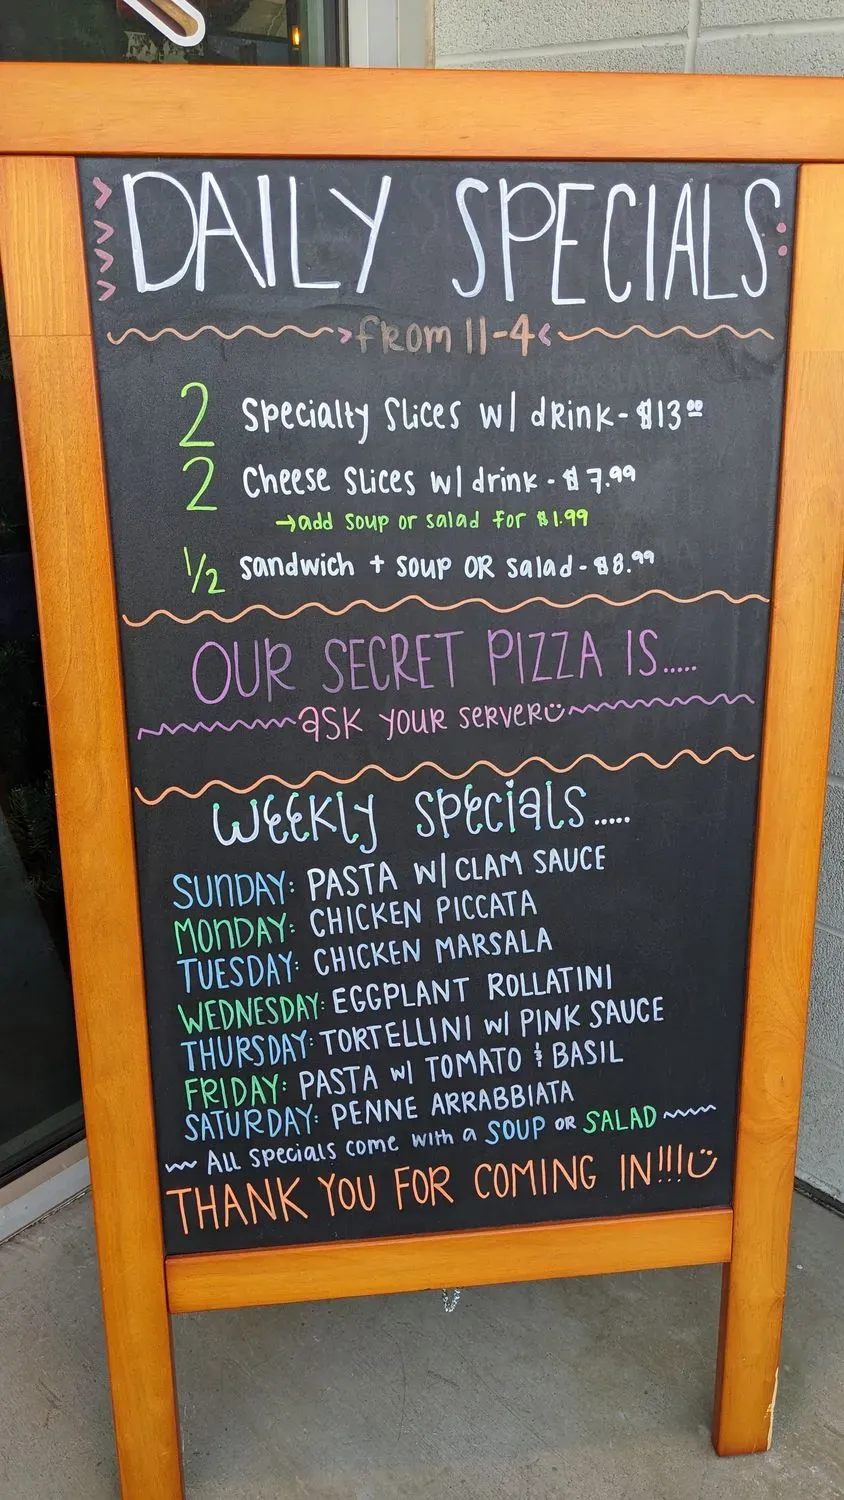 DAILY SPECIALS:
from 11-4
2 Specialty Slices w/ drink - $13.00
2 Cheese Slices w/ drink - $7.99
→add soup or salad for $1.99
1/2 sandwich + soup OR salad - $8.99
OUR SECRET PIZZA IS.....
ask your server
Weekly Specials.....
SUNDAY: PASTA W/ CLAM SAUCE
MONDAY: CHICKEN PICCATA
TUESDAY: CHICKEN MARSALA
WEDNESDAY: EGGPLANT ROLLATINI
THURSDAY: TORTELLINI w/ PINK SAUCE
FRIDAY: PASTA w/ TOMATO & BASIL
SATURDAY: PENNE ARRABBIATA
All specials come with a SOUP OR SALAD
THANK YOU FOR COMING IN!!!